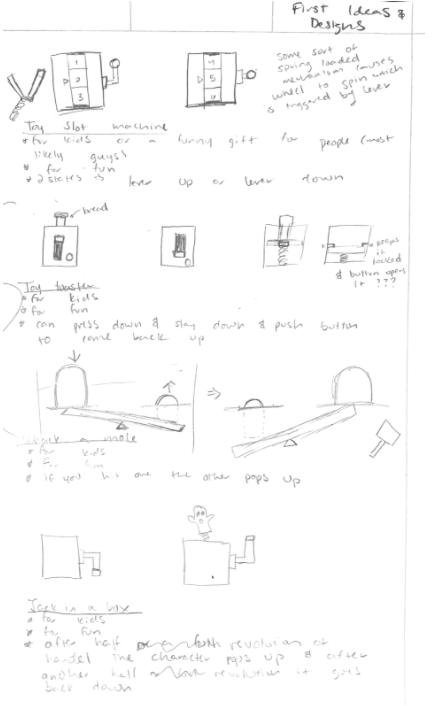 First Ideas &
Designs
1
2
3
4
5
6
some sort of
spring loaded
mechanism causes
wheel to spin which
is triggered by lever
Toy slot machine
* for kids or a funny gift for people (most
likely guys)
* for fun
* 2 states is lever up or lever down
bread
keeps
it
locked
& button opens
it ???
Toy toaster
* for kids
* for fun
* can press down & stay down & push button
to come back up
Whack a mole
* for kids
* for fun
* if you hit one the other pops up
Jack in a box
* for kids
* for fun
* after half revolution of
handel the character pops up & after
another half revolution it goes
back down